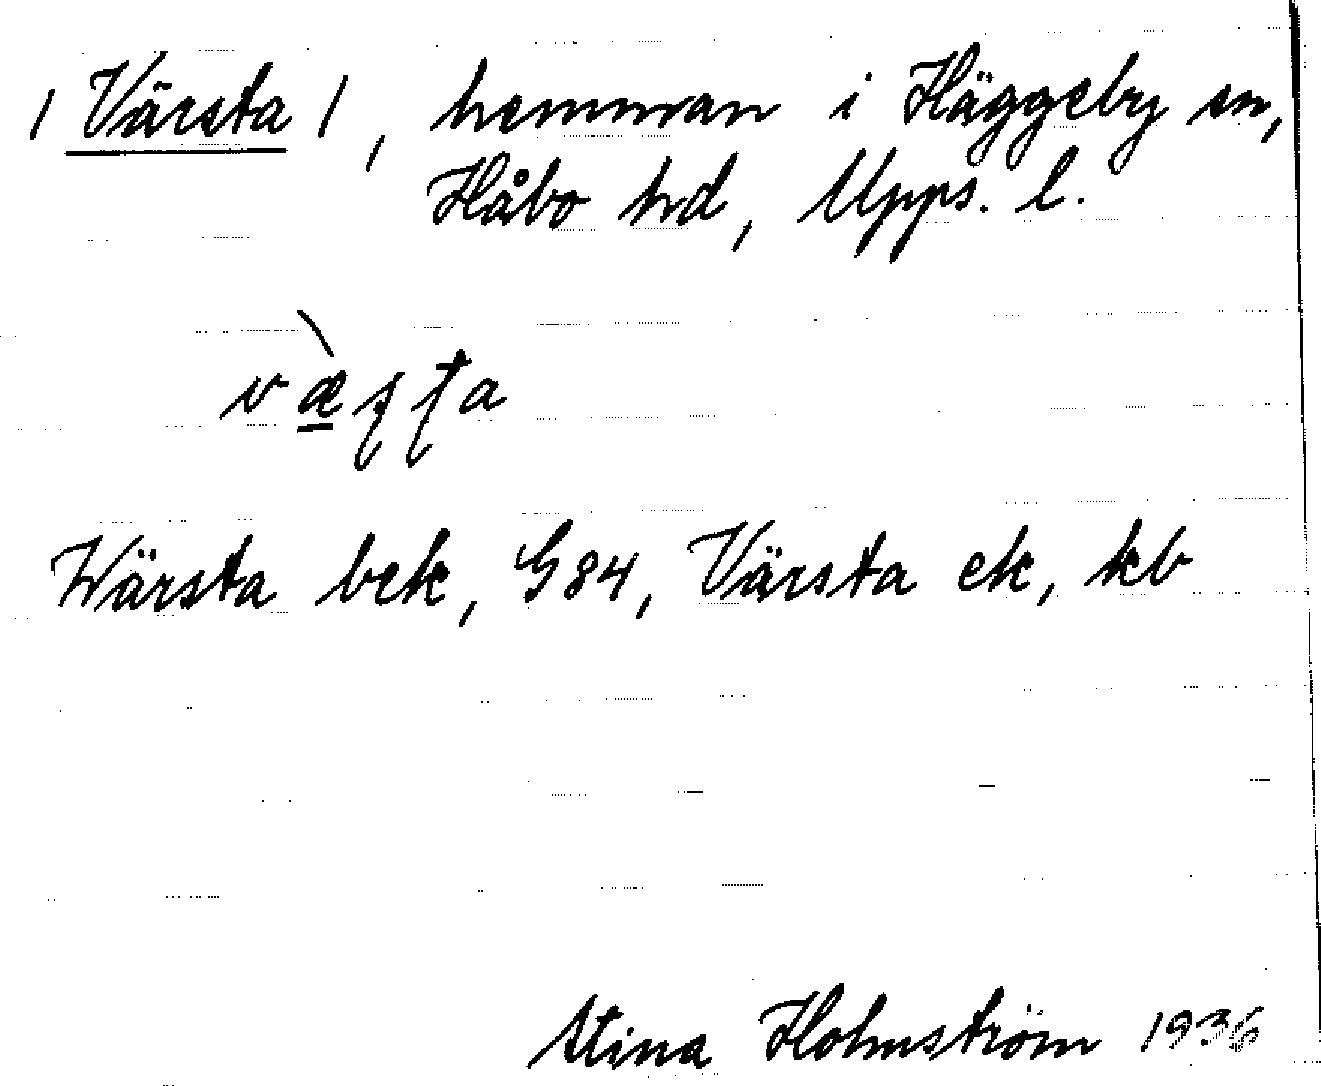 / Värsta /, hemman i Häggeby sn,
Håbo hrd, Upps. l.
Wärsta bek, G84, Värsta ek, kb
Stina Holmström 1936